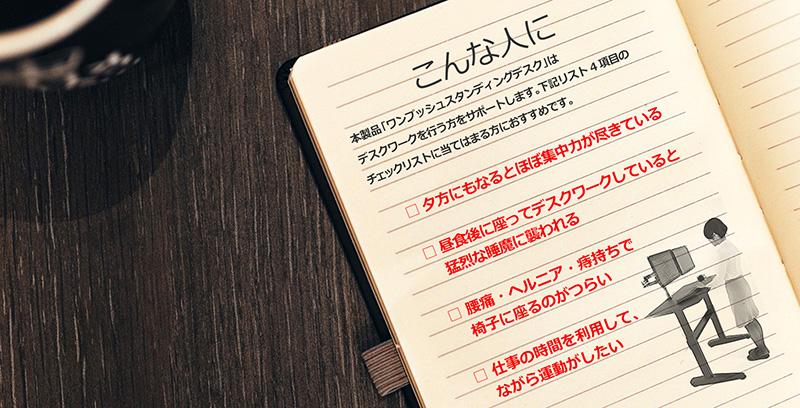 こんな人に
本製品「ワンプッシュスタンディングデスク」は
デスクワークを行う方をサポートします。下記リスト4項目の
チェックリストに当てはまる方におすすめです。
□ 夕方にもなるとほぼ集中力が尽きている
□ 昼食後に座ってデスクワークしていると
猛烈な睡魔に襲われる
□ 腰痛・ヘルニア・痔持ちで
椅子に座るのがつらい
□ 仕事の時間を利用して、
ながら運動がしたい